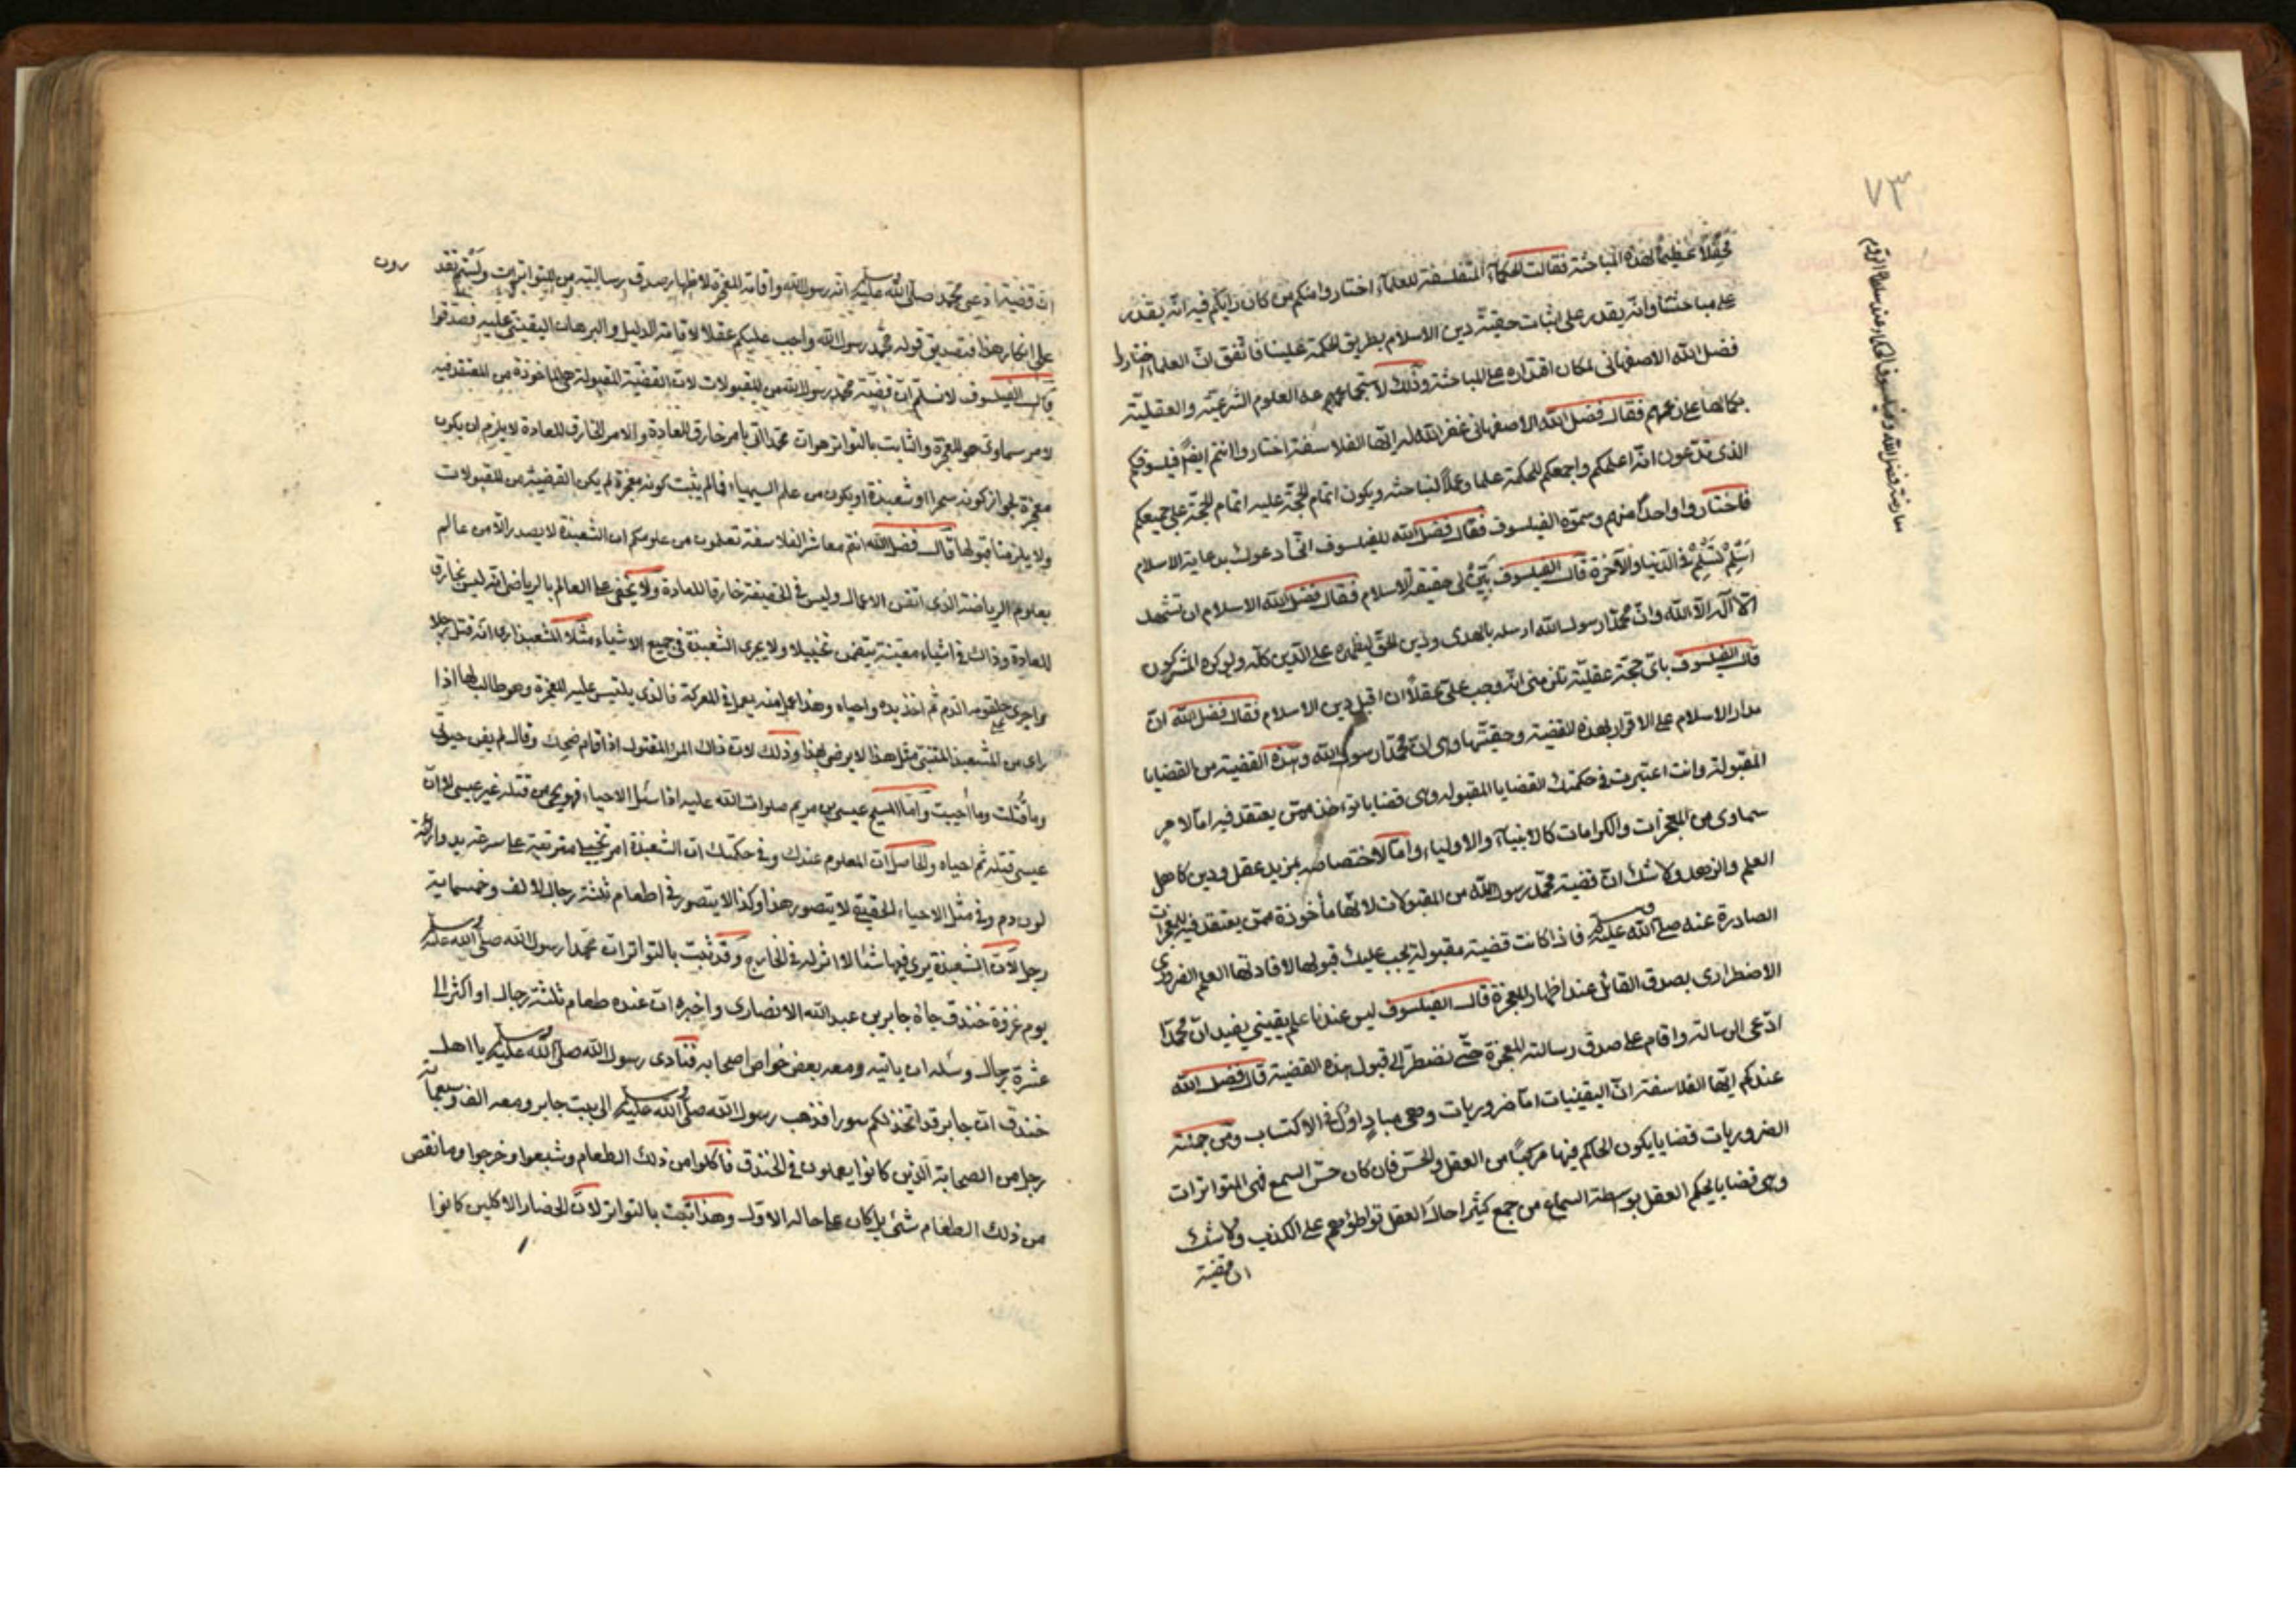 ٧٣
مباحثة فضل الله وفيلسوف الحكماء عند سلطان الروم
محفلاً عظيماً لهذه المباحثة فقالت الحكماء المتفلسفة للعلماء اختاروا منكم من كان رأيكم فيه انه يقدر
على مباحثتنا وانه يقدر على اثبات حقيّة دين الاسلام بطريق الحكمة علينا فاتفق انّ العلماء اختاروا
فضل الله الاصفهانى لمكان اقتداره على المباحثة وذلك لاستجماعهم عنه العلوم الشرعيّة والعقليّة
بكمالها على زعمهم فقال فضل الله الاصفهانى غفر الله له ايّها الفلاسفة اختاروا انتم ايضاً فيلسوفكم
الذى تدّعون انّه اعلمكم واجمعكم للحكمة علما وعملاً لنباحثه ويكون اتمام الحجّة عليه اتمام الحجّة على جميعكم
فاختاروا واحداً منهم وسمّوه الفيلسوف فقال فضل الله للفيلسوف انّى أدعوك بدعاية الاسلام
اَسْلِمْ تَسْلَمْ فى الدنيا والآخرة قال الفيلسوف بيّن لى حقيقة الاسلام فقال فضل الله الاسلام ان تشهد
ان لا اله الّا الله وانّ محمّدا رسول الله ارسله بالهدى ودين الحقّ ليظهره على الدّين كلّه ولو كره المشركون
قال الفيلسوف باىّ حجّة عقليّة تلزمنى انّه وجب علىّ عقلاً ان اقبل دين الاسلام فقال فضل الله انّ
مدار الاسلام على الاقرار بهذه القضية وحقيّتها وهى انّ محمّدا رسول الله وهذه القضية من القضايا
المقبولة وانت اعتبرت فى حكمتك القضايا المقبوله وهى قضايا تؤخذ ممّن يعتقد فيه امّا لامر
سماوى من المعجزات والكرامات كالانبياء والاولياء وامّا لاختصاصه بمزيد عقل ودين كاهل
العلم والزهد ولا شك انّ قضية محمّد رسول الله من المقبولات لانّها مأخوذة ممّن يعتقد فيه للمعجزات
الصادرة عنه صلى الله عليه وسلم فاذا كانت قضية مقبولة يجب عليك قبولها لافادتها العلم الضرورى
الاضطرارى بصدق القائل عند اظهار المعجزة قال الفيلسوف ليس عندنا علم يقينى يفيد انّ محمّدا
ادّعى الرسالة واقام على صدق رسالته المعجزة حتّى نضطرّ الى قبول هذه القضية قال فضل الله
عندكم ايّها الفلاسفة انّ اليقينيات امّا ضروريات وهى مبادٍ اول فى الاكتساب ومن جملة
الضروريات قضايا يكون الحاكم فيها مركباً من العقل والحسّ فان كان حسّ السمع فهى المتواترات
وهى قضايا يحكم العقل بواسطة السماع من جمع كثير احال العقل تواطؤهم على الكذب ولا شك
ان قضية
انّ قضية ادّعى محمّد صلى الله عليه وسلم انّه رسول الله واقامة المعجزة لاظهار صدق رسالته من المتواترات ولستم تقدرون
على انكار هذا فتصديق قوله محمّد رسول الله واجب عليكم عقلا لاقامة الدليل والبرهان اليقينى عليه فصدقوا
قال الفيلسوف لا نسلم انّ قضيّة محمّد رسول الله من المقبولات لانّ القضية المقبولة هى المأخوذة من المعتقد فيه
لامر سماوى هو المعجزة والثابت بالتواتر هو انّ محمّدا اتى بامر خارق للعادة والامر الخارق للعادة لا يلزم ان يكون
معجزة لجواز كونه سحرا او شعبذة او يكون من علم السيمياء فما لم يثبت كونه معجزة لم يكن القضية من المقبولات
ولا يلزمنا قبولها قال فضل الله انتم معاشر الفلاسفة تعلمون من علومكم ان الشعبذة لا يصدر الّا من عالم
بعلوم الرياضة الذى اتقن الاعمال وليس فى الحقيقة خارقا للعادة ولا يخفى على العالم بالرياضى انّه ليس بخارق
للعادة وذاك فى اشياء معينة يتضمن تخييلا ولا يجرى الشعبذة فى جميع الاشياء مثلا المشعبذ ارى انّه قتل رجلا
واجرى من حلقومه الدم ثم اخذ بيده واحياه وهذا عمل منه يعمل فى المعركة فالذى يلتبس عليه المعجزة وهو طالب لها اذا
راى من المشعبذ المتنبّى مثل هذا لا يرضى بهذا وذلك لانّ ذاك المرء المقتول اذا قام ضحك وقال لم يفن حيوتى
وما قُتلت وما أحييت وامّا المسيح عيسى بن مريم صلوات الله عليه اذا سئل الاحياء فهو يحيى من قتله غير عيسى لا انّ
عيسى قتله ثم احياه والحاصل انّ المعلوم عندك وفى حكمتك انّ الشعبذة امر تخييلى متوقفة على سرعة يد واراقة
لون دم وفى مثل الاحياء الحقيقى لا يتصور هذا وكذا لا يتصور فى اطعام ثلثة رجال لالف وخمسماية
رجل لانّ الشعبذة يرى فيها شيئا لا اثر له فى الخارج وقد ثبت بالتواتر انّ محمّدا رسول الله صلى الله عليه وسلم
يوم غزوة خندق جاءه جابر بن عبد الله الانصارى واخبره انّ عنده طعام ثلثة رجال او اكثر الى
عشرة رجال وسئله ان ياتيه ومعه بعض خواص اصحابه فنادى رسول الله صلى الله عليه وسلم يا اهل
خندق انّ جابر قد اتخذ لكم سورا فذهب رسول الله صلى الله عليه وسلم الى بيت جابر ومعه الف وسبعمائة
رجل من الصحابة الّذين كانوا يعملون فى الخندق فأكلوا من ذلك الطعام وشبعوا وخرجوا وما نقص
من ذلك الطعام شئ بل كان على حاله الاول وهذا ثبت بالتواتر لانّ الحضار الاكلين كانوا